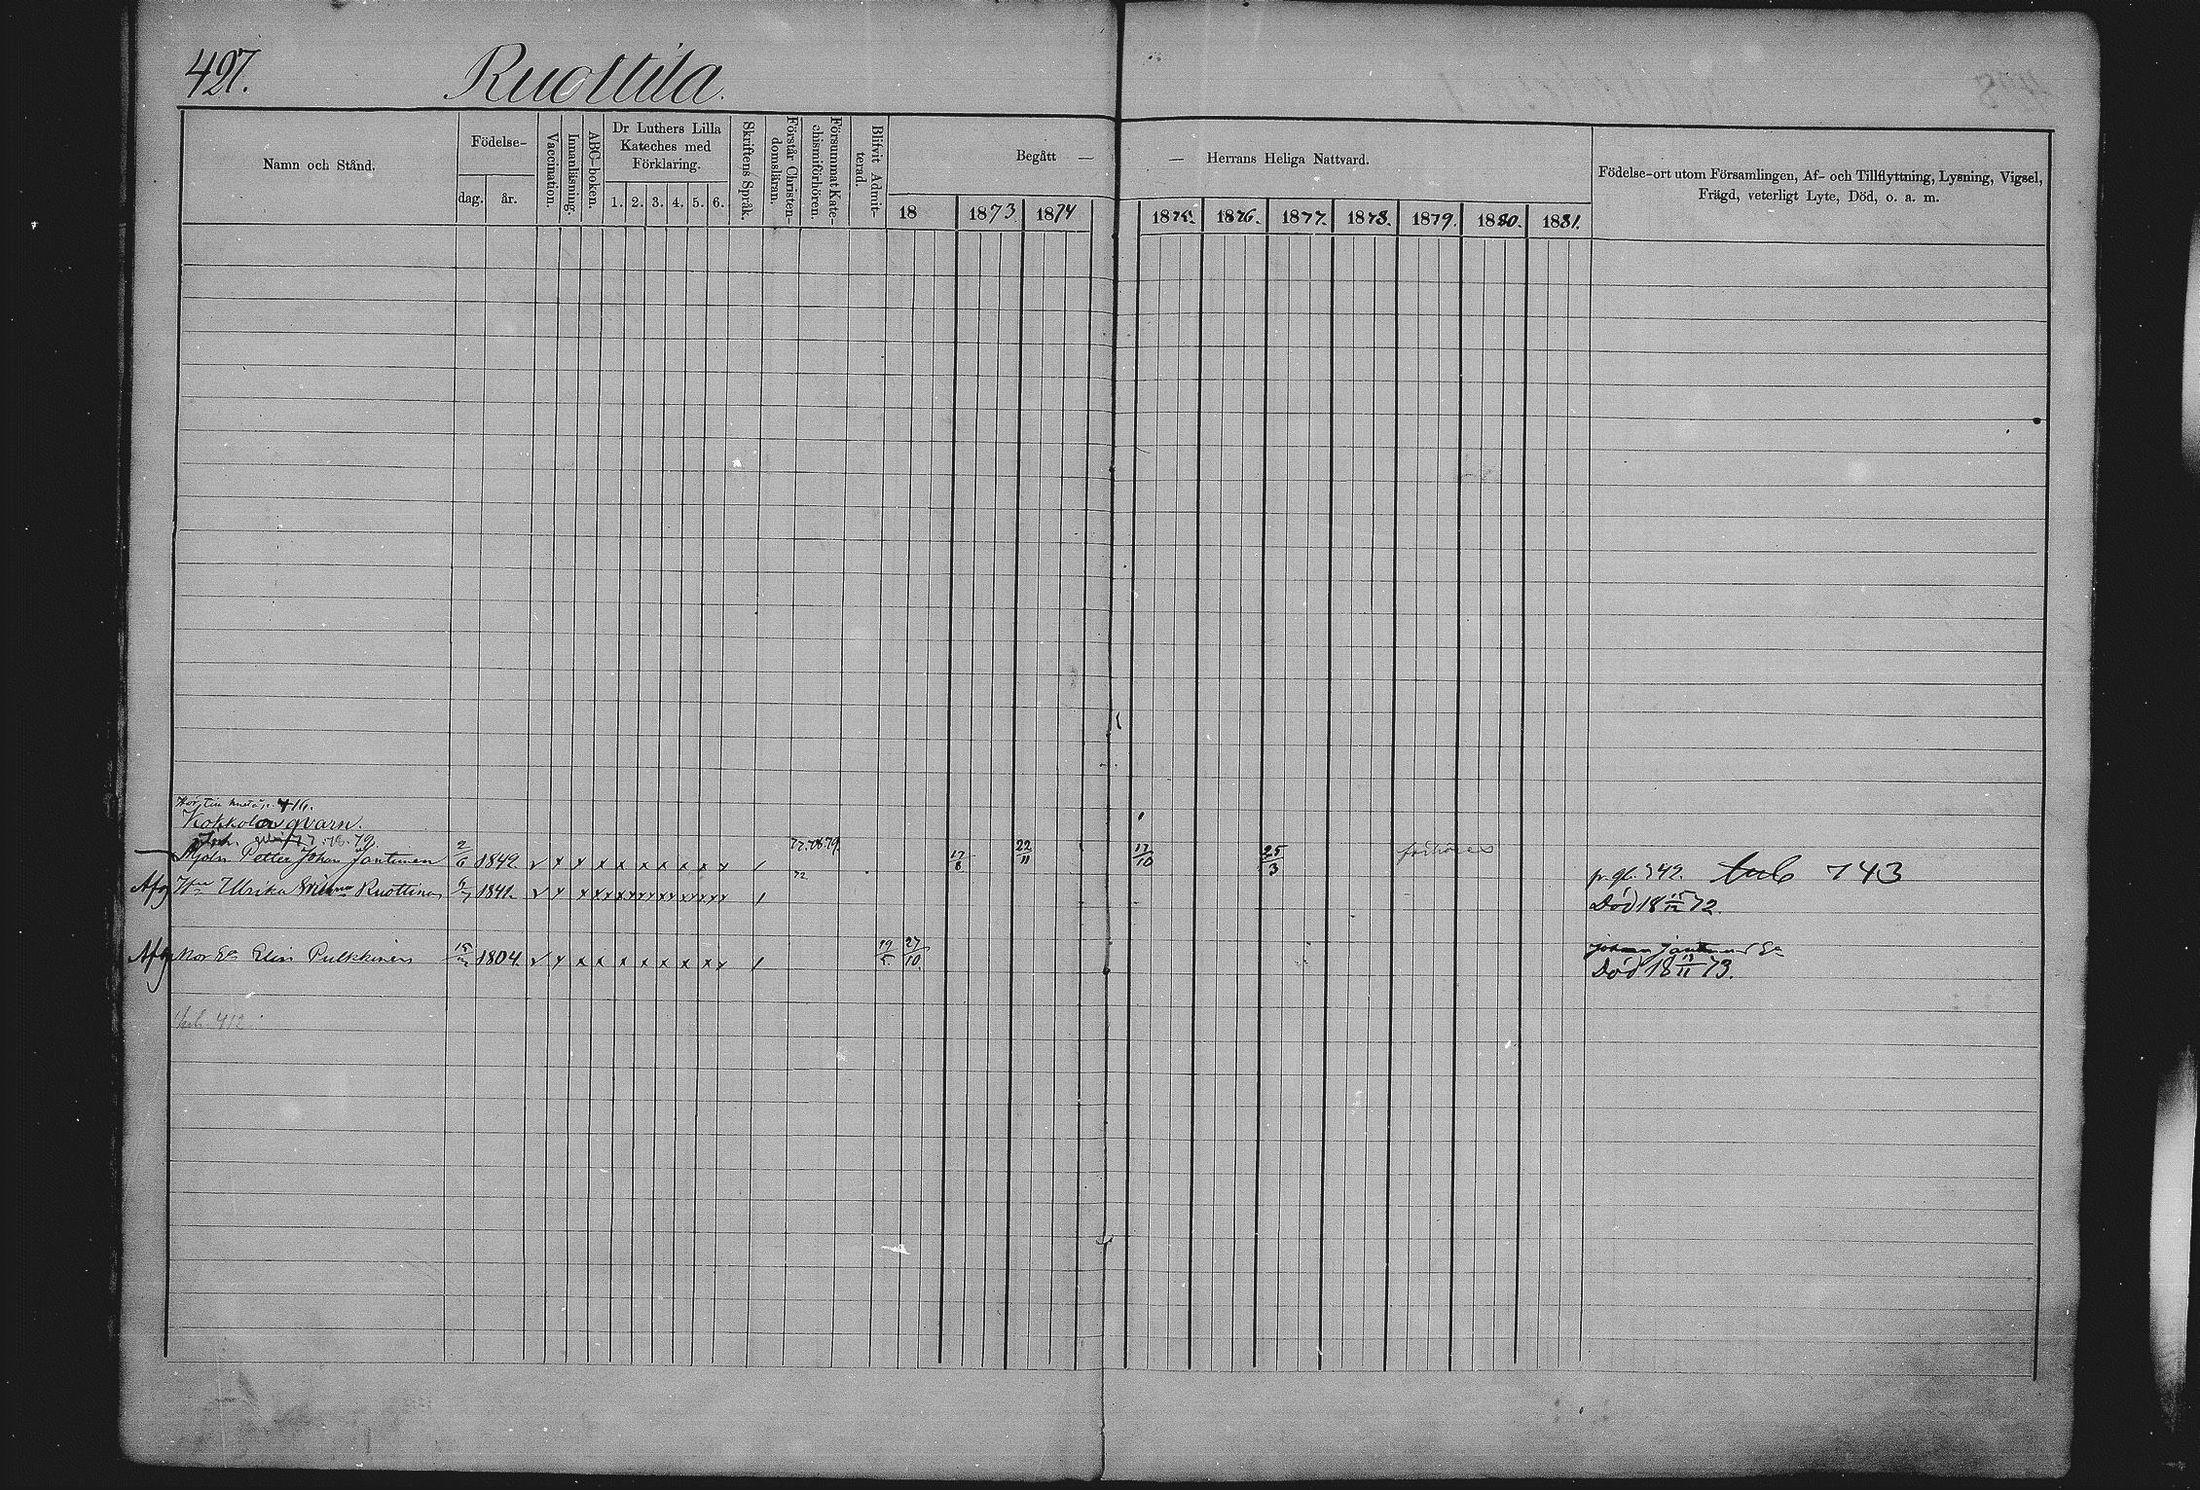 427. Ruottila.
Namn och Stånd.
Födelse-
dag. år.
Vaccination.
Innanläsning.
ABC-boken.
Dr Luthers Lilla Kateches med Förklaring.
1. 2. 3. 4. 5. 6.
Skriftens Språk.
Förstår Christen-domsläran.
Försummat Kate-chismiförhören.
Blifvit Admit-terad.
Begått — — Herrans Heliga Nattvard.
18 1873. 1874 1875. 1876. 1877. 1878. 1879. 1880. 1881.
Födelse-ort utom Församlingen, Af- och Tillflyttning, Lysning, Vigsel,
Frägd, veterligt Lyte, Död, o. a. m.
416.
Kokkola qvarn.
77. 78. 79.
Mjöln Petter Johan Jantunen 2/6 1842. √ x x x x x x x x x / 77.78.79. 17/8 22/11 17/10 25/3 p. gl. 342. 743
Afg Hu Ulrika Ruottina 6/7 1841. √ x x x x x x x x x / 72 Död 18 15/12 72.
Johan Jantunen
Afg Mor Elin Pulkkinen 15/12 1804. √ x x x x x x x x x / 19/5 27/10 Död 18 13/11 73.
412